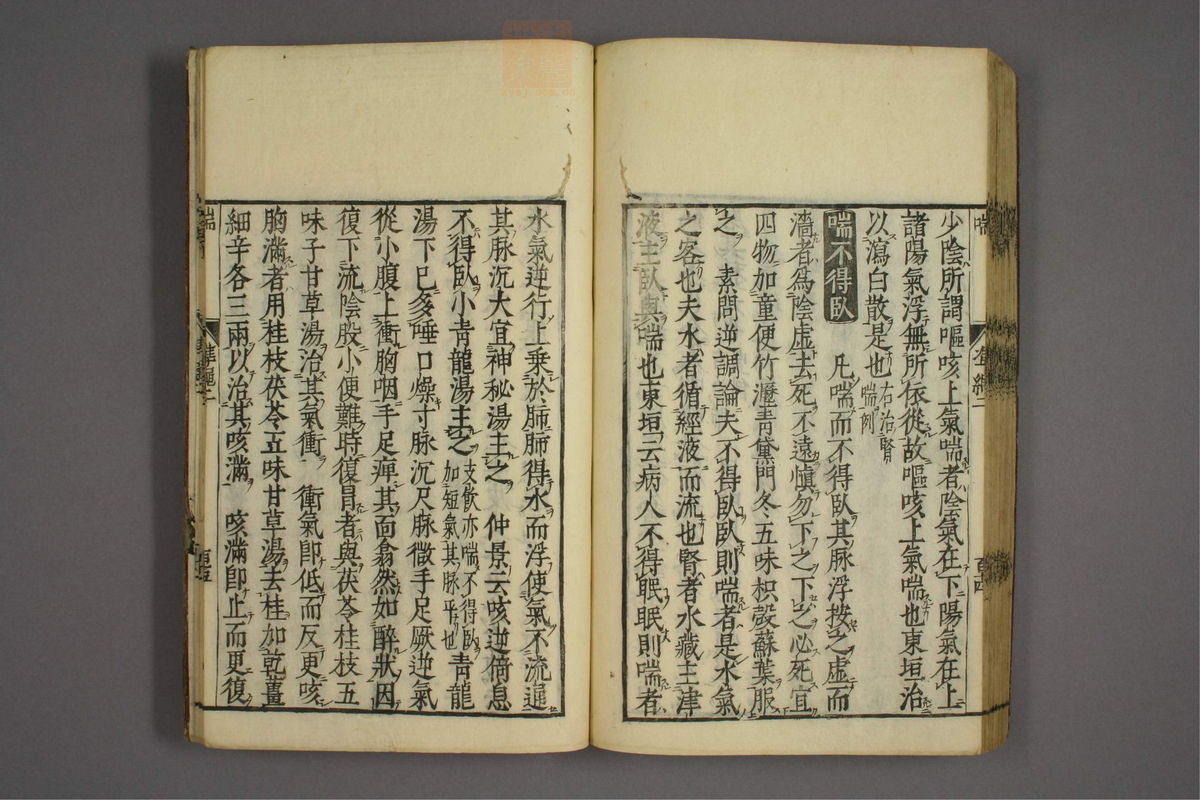 少陰所謂嘔咳上氣喘者陰氣在下陽氣在上
諸陽氣浮無所依從故嘔咳上氣喘也東垣治
以瀉白散是也右治腎喘例
喘不得臥　凡喘而不得臥其脉浮按之虛而
濇者爲陰虛去死不遠愼勿下之下之必死宜
四物加童便竹瀝青黛門冬五味枳殼蘇葉服
之　素問逆調論夫不得臥臥則喘者是水氣
之客也夫水者循經液而流也腎者水藏主津
液主臥與喘也東垣云病人不得眠眠則喘者
水氣逆行上乘於肺肺得水而浮使氣不流通
其脉沉大宜神秘湯主之　仲景云咳逆倚息
不得臥小青龍湯主之支飲亦喘不得臥加短氣其脉平也青龍
湯下已多唾口燥寸脉沉尺脉微手足厥逆氣
從小腹上衝胸咽手足痺其面翕然如醉狀因
復下流陰股小便難時復冒者與茯苓桂枝五
味子甘草湯治其氣衝　衝氣卽低而反更咳
胸滿者用桂枝茯苓五味甘草湯去桂加乾薑
細辛各三兩以治其咳滿　咳滿卽止而更復